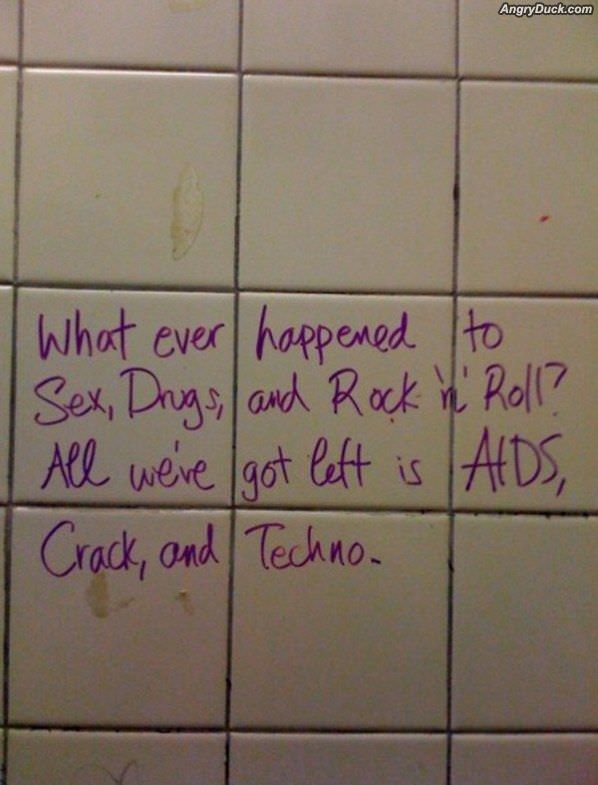 AngryDuck.com
What ever happened to
Sex, Drugs, and Rock 'n' Roll?
All we've got left is AIDS,
Crack, and Techno.